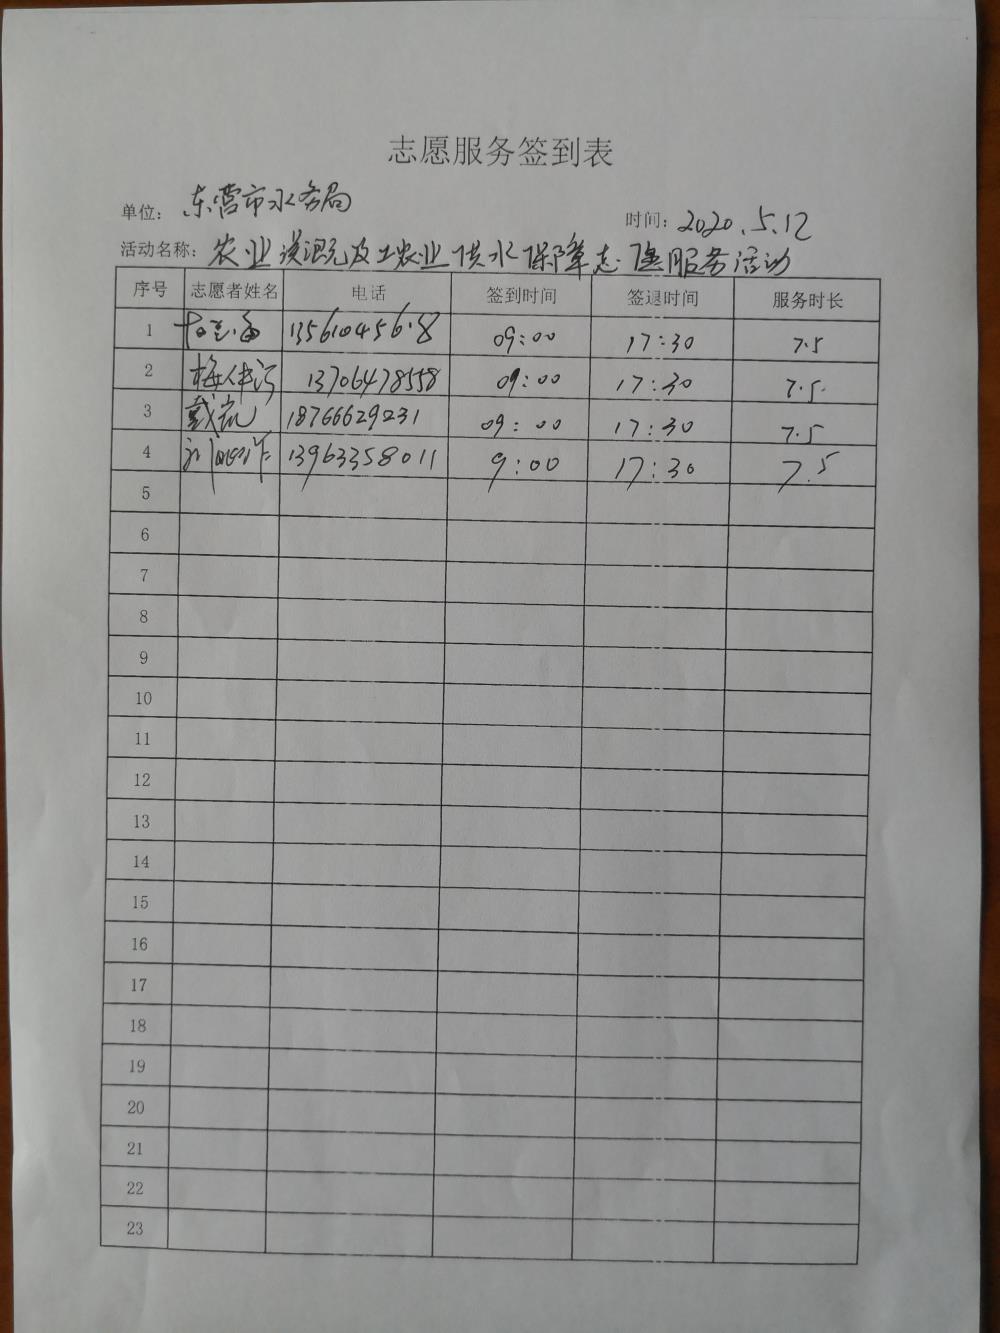 志愿服务签到表
单位: 东营市水务局
时间: 2020.5.12
活动名称: 农业 及 农业供水保障志愿服务活动
序号 志愿者姓名 电话 签到时间 签退时间 服务时长
1 09:00 17:30 7.5
2 13706478558 09:00 17:30 7.5
3 戴凯 18766629231 09:00 17:30 7.5
4 13963358011 9:00 17:30 7.5
5
6
7
8
9
10
11
12
13
14
15
16
17
18
19
20
21
22
23